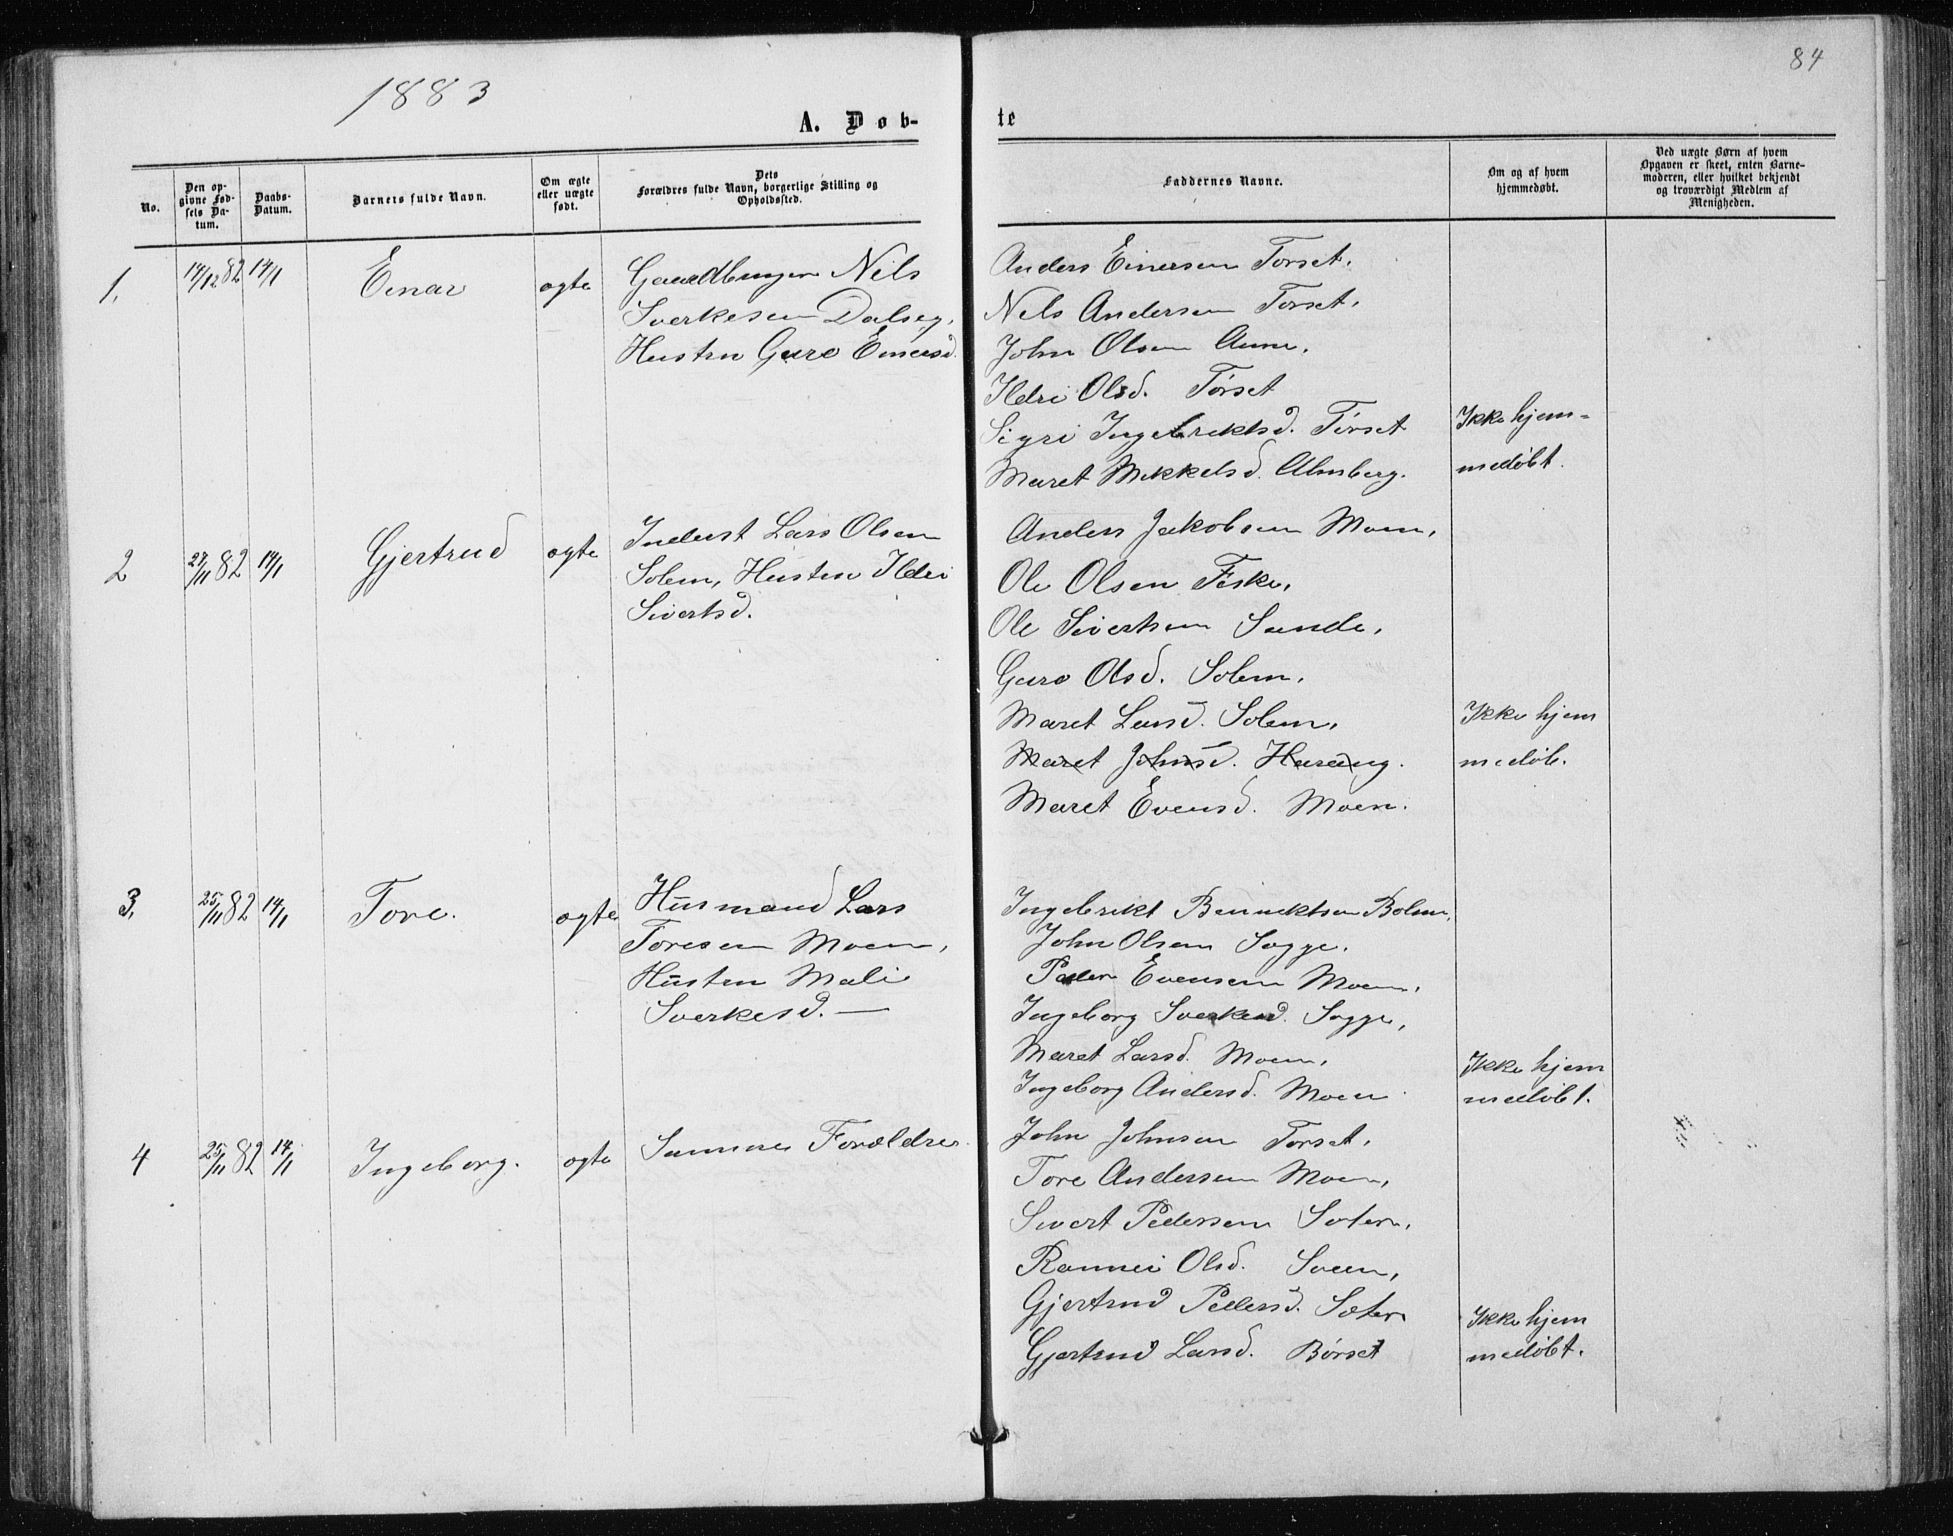 1883
84
A. Døb-
te
No.
Den op-
givne Fød-
sels Da-
tum.
Daabs-
Datum.
Barnets fulde Navn.
Om ægte
eller uægte
født.
Dets
Forældres fulde Navn, borgerlige Stilling og
Opholdssted.
Faddernes Navne.
Om og af hvem
hjemmedøbt.
Ved uægte Børn af hvem
Opgaven er skeet, enten Barne-
moderen, eller hvilket bekjendt
og troværdigt Medlem af
Menigheden.
1. 14/12 82 14/1 Einar ægte
Gaardbruger Nils
Sverkesen Dalseg,
Hustru Guro Einersd.
Anders Einersen Torset.
Nels Andersen Torset.
John Olsen Aune.
Ildri Olsd. Tørset
Sigri Ingebriktsd. Tørset
Maret Mikkelsd. Almberg.
Ikke hjem-
medøbt.
2 27/11 82 14/1 Gjertrud ægte
Inderst Lars Olsen
Solem, Hustru Ildri
Sivertsd.
Anders Jakobsen Moen,
Ole Olsen Fiske,
Ole Sivertsen Sande,
Guro Olsd. Solem,
Maret Larsd. Solem,
Maret Johnsd. Haraang.
Maret Evensd. Moen.
Ikke hjem
medøb.
3. 25/11 82 14/1 Tore. ægte
Husmand Lars
Toresen Moen,
Hustru Mali
Sverkesd. —
Ingebrikt Benuektsen Bolme,
John Olsen Sogge.
Peder Evensen Moen,
Ingeborg Sverkesd. Sogge,
Maret Larsd. Moen,
Ingeborg Andersd. Moen
Ikke hjem
medøbt.
4 25/11 82 14/1 Ingeborg. ægte
Samme Forældre.
John Johnsen Torset.
Tore Andersen Moen,
Sivert Pedersen Sæter.
Rannei Olsd. Sveen,
Gjertrud Pedersd. Sæter
Gjertrud Larsd. Børset
Ikke hjem
medøbt.